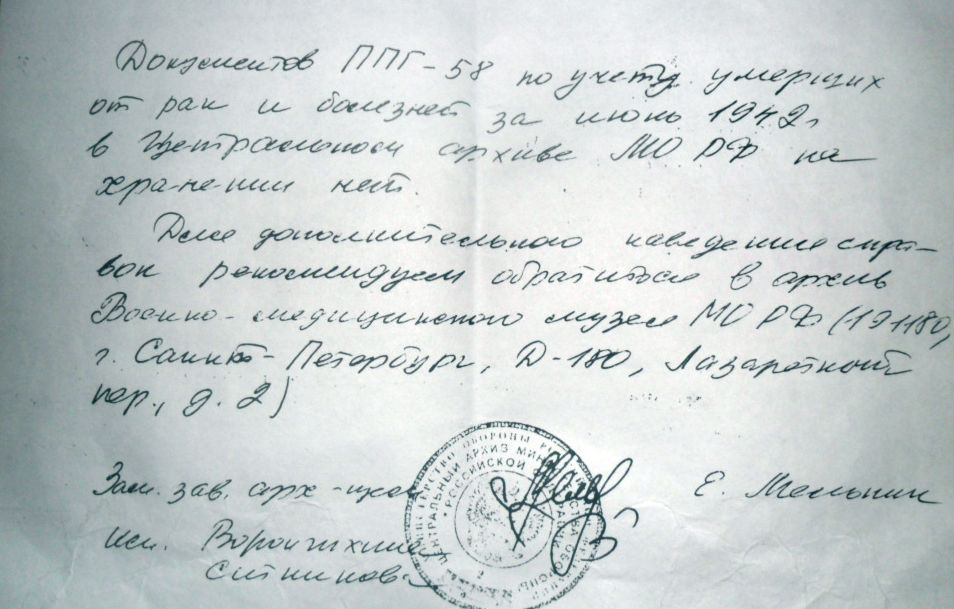 Документов ППГ-58 по учету умерших
от ран и болезней за июнь 1942г
в Центральном архиве МО РФ на
хранении нет.
Для дополнительного наведения спра-
вок рекомендуем обратиться в архив
Военно-медицинского музея МО РФ (191180,
г. Санкт-Петербург, Д-180, Лазаретный
пер., д. 2)
МИНИСТЕРСТВО ОБОРОНЫ
ЦЕНТРАЛЬНЫЙ АРХИВ МИНИСТЕРСТВА ОБОРОНЫ
РОССИЙСКОЙ ФЕДЕРАЦИИ
Зам. зав. арх-щем Е. Мельник
исп. Воронихина
Ситникова